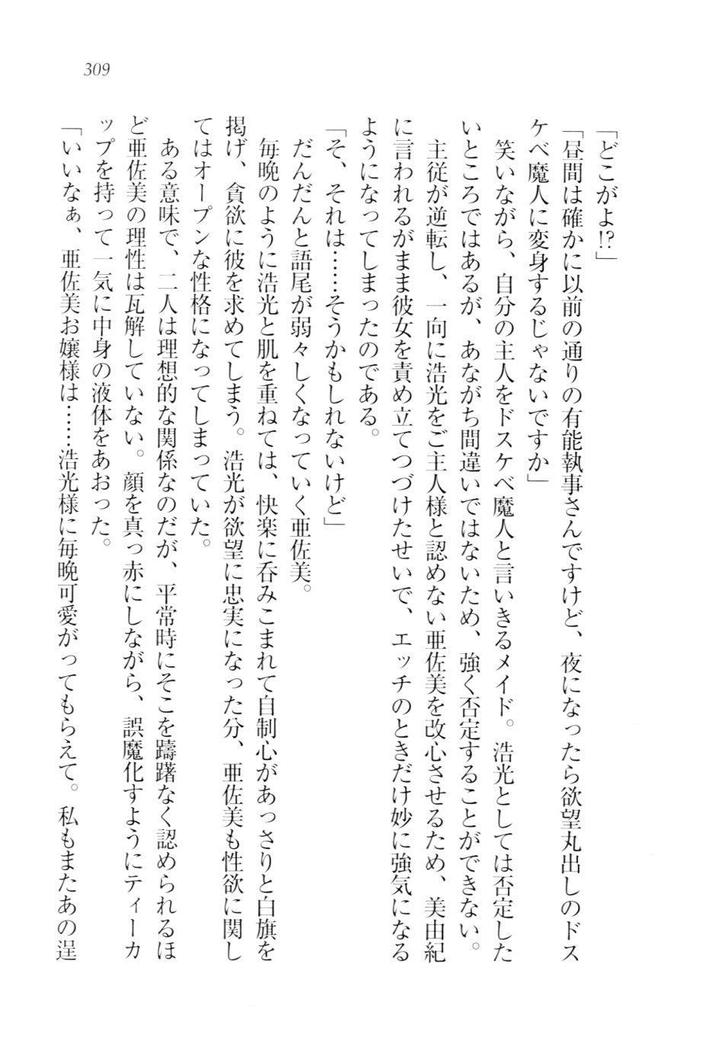 309
「どこがよ!?」
「昼間は確かに以前の通りの有能執事さんですけど、夜になったら欲望丸出しのドス
ケベ魔人に変身するじゃないですか」
笑いながら、自分の主人をドスケベ魔人と言いきるメイド。浩光としては否定した
いところではあるが、あながち間違いではないため、強く否定することができない。
主従が逆転し、一向に浩光をご主人様と認めない亜佐美を改心させるため、美由紀
に言われるがまま彼女を責め立てつづけたせいで、エッチのときだけ妙に強気になる
ようになってしまったのである。
「そ、それは……そうかもしれないけど」
だんだんと語尾が弱々しくなっていく亜佐美。
毎晩のように浩光と肌を重ねては、快楽に呑みこまれて自制心があっさりと白旗を
掲げ、貪欲に彼を求めてしまう。浩光が欲望に忠実になった分、亜佐美も性欲に関し
てはオープンな性格になってしまっていた。
ある意味で、二人は理想的な関係なのだが、平常時にそこを躊躇なく認められるほ
ど亜佐美の理性は瓦解していない。顔を真っ赤にしながら、誤魔化すようにティーカ
ップを持って一気に中身の液体をあおった。
「いいなぁ、亜佐美お嬢様は……浩光様に毎晩可愛がってもらえて。私もまたあの逞